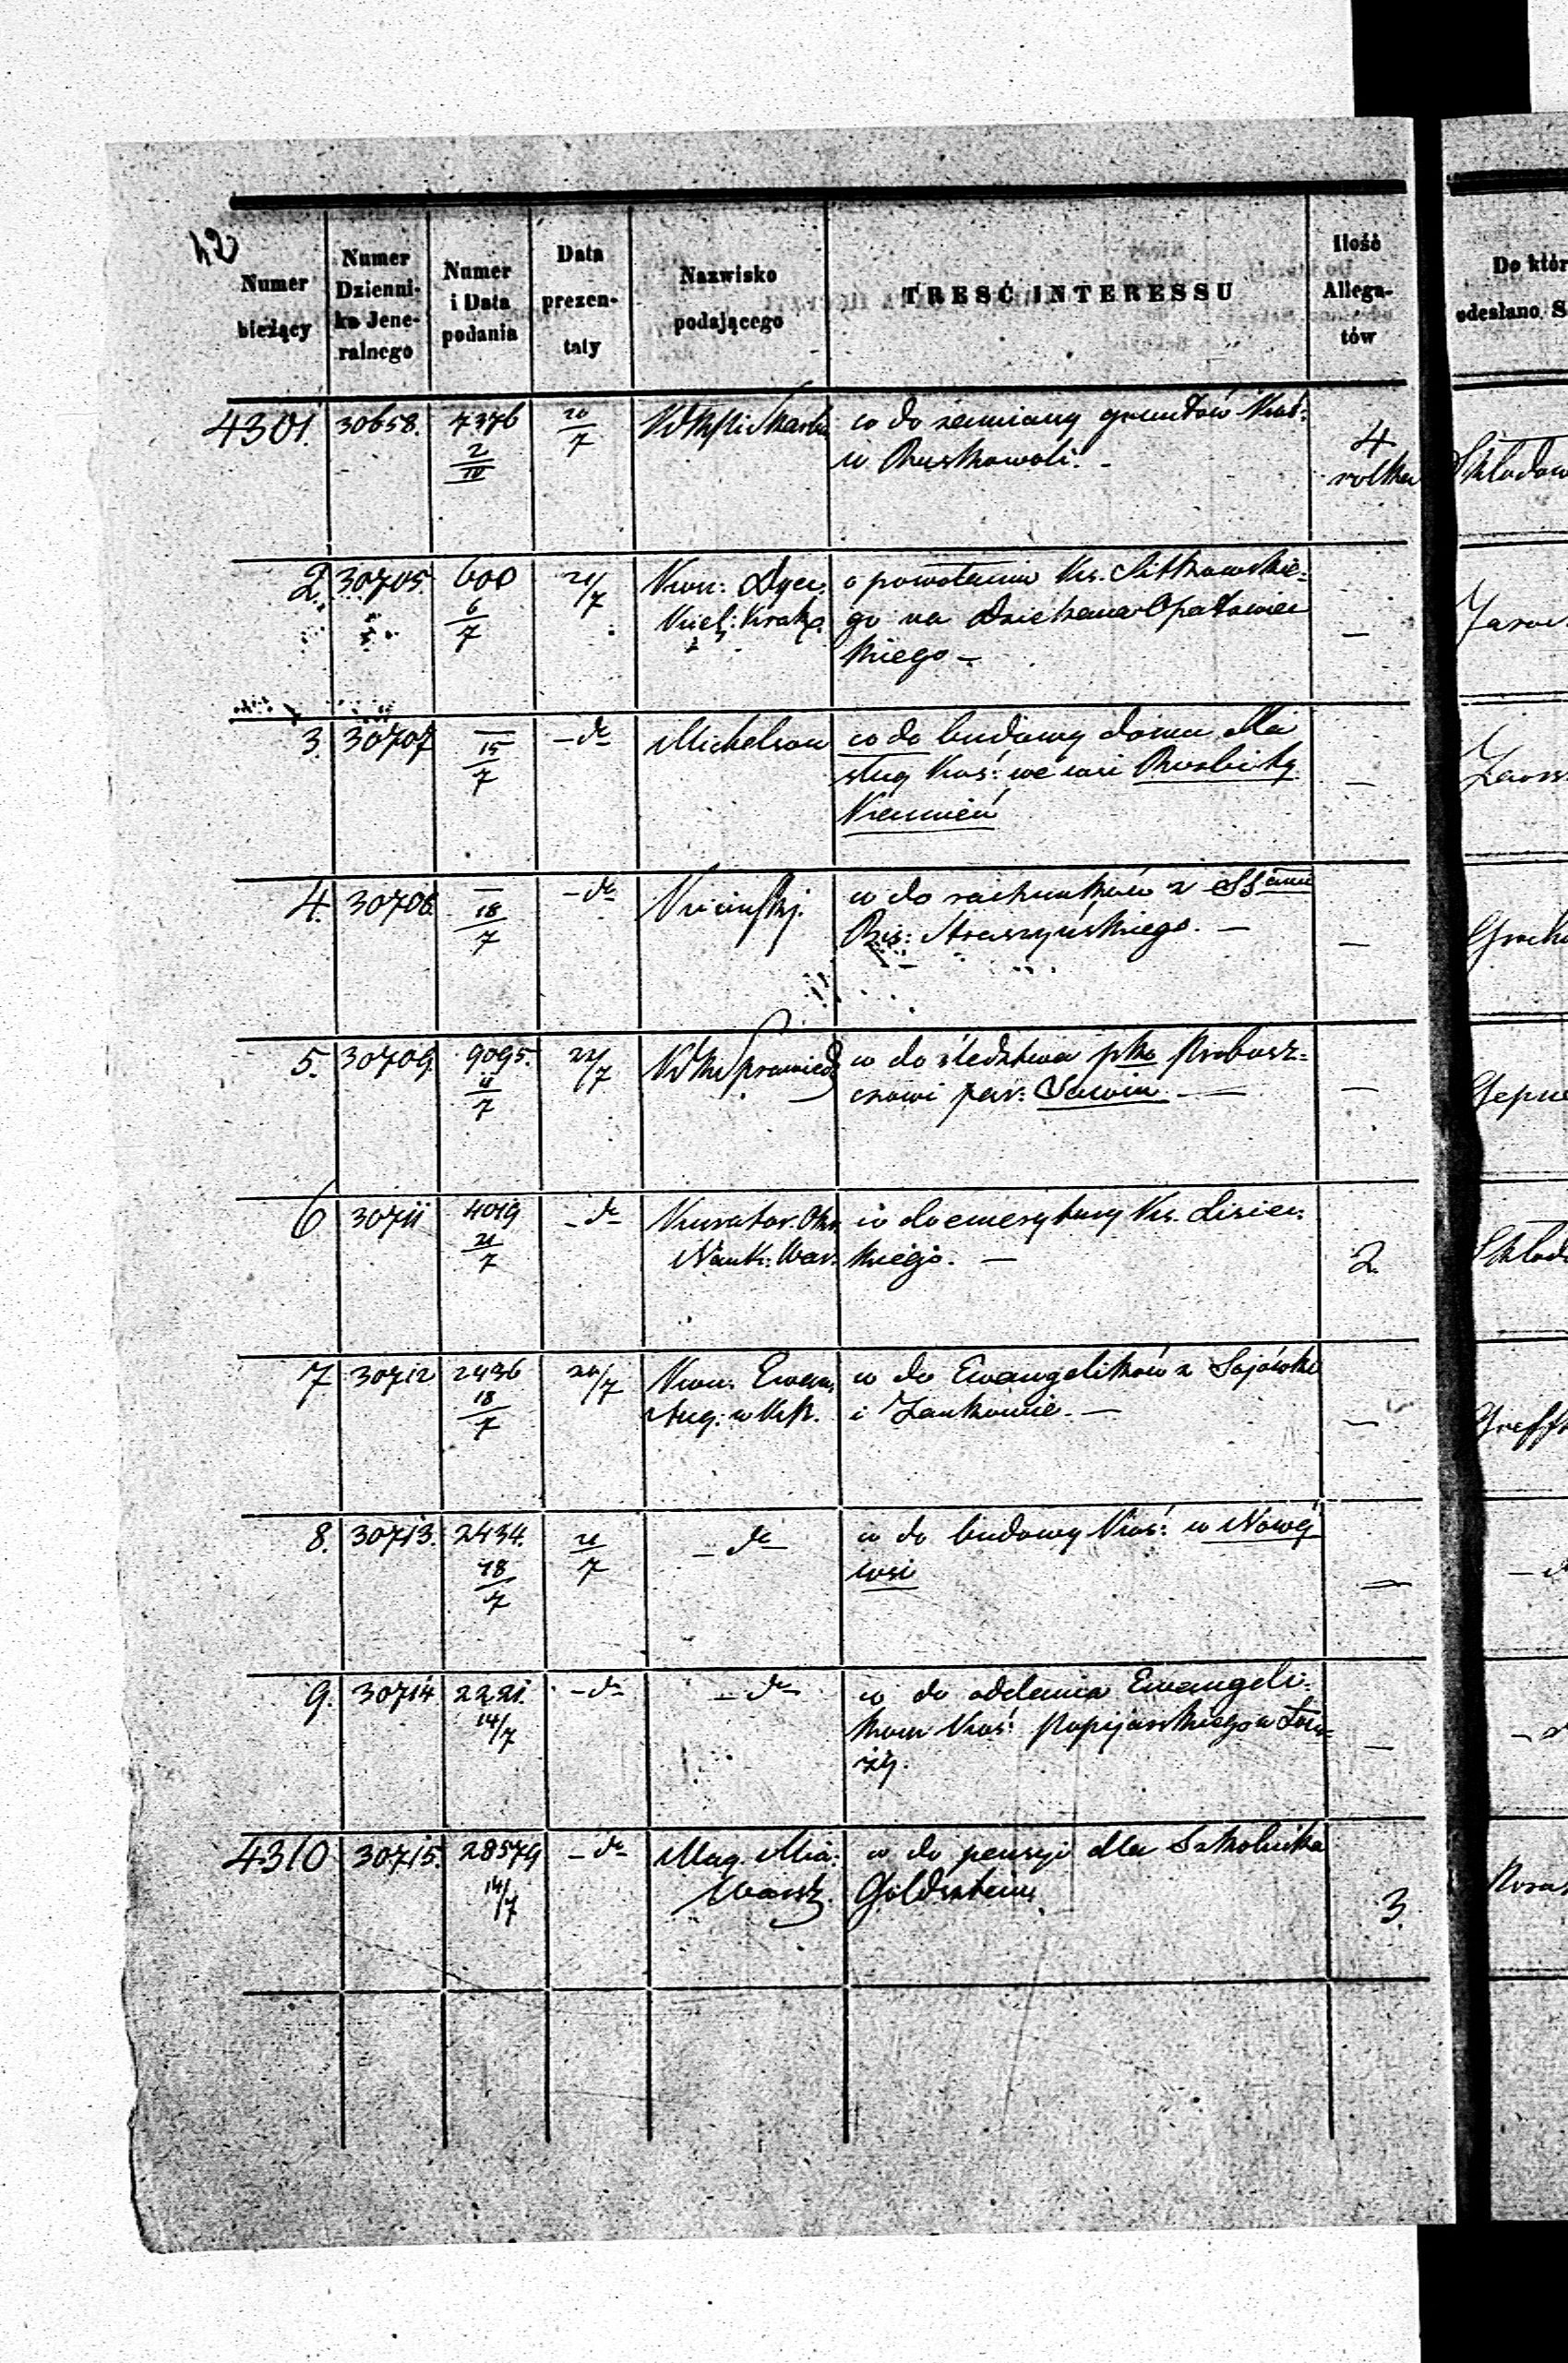 42
Numer bieżący
Numer Dzienni- ka Jene- ralnego
Numer i Data podania
Data prezen- taty
Nazwisko podającego
TREŚĆ INTERESSU
Ilość Allega- tów
Do któr
odesłano S
4301. 30658. 7376 2/10 20/7 co do zamiany gruntów Koś: 4
w Ruskowoli. - rolka
2. 30705. 600 6/7 21/7 Kon: Dyec: o powołaniu Ks. Sitkowskie=
Kiel: Krak. go na Dziekana Opatowiec
kiego - —
3. 30707 — 15/7 — do Michelson co do budowy domu dla
sług Koś: we wsi Rozbity —
Kamień
4. 30708 — 18/7 — do co do rachunków z
Bis: Straszyńskiego. — —
5. 30709. 9095. 11/7 22/7 co do śledztwa pko Probosz=
czowi par: Sawin — —
6 30711 4019 21/7 — do Kurator. Okr. co do emerytury Ks. Lisiec
Nauk: War. kiego. — 2.
7 30712 2436 18/7 20/7 Kon: Ewan. co do Ewangelików z Sajówki
Aug: w KP. i Jankowie — —
8. 30713. 2434. 18/7 21/7 — do co do budowy Koś: w Nowéj
wsi —
9. 30714 2221. 14/7 — do — do co do oddania Ewangeli=
kom Koś: Popijarskiego w Łom=
ży. —
4310 30715. 28579 14/7 — do Mag. Mia: co do pensyi dla Szkolnika
Warsz. Goldsztein 3.